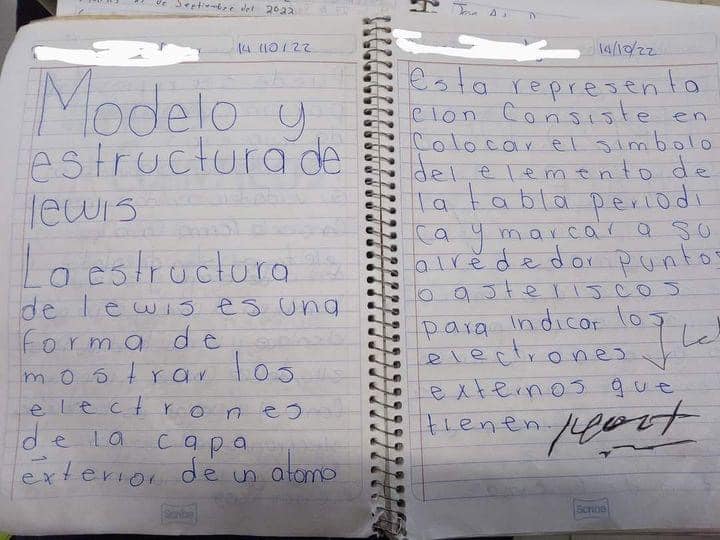 de Septiembre del 2022
14/10/22
Modelo y
estructura de
lewis
La estructura
de lewis es una
forma de
mostrar los
electrones
de la capa
exterior de un atomo
Scribe
14/10/22
esta representa
cion Consiste en
Colocar el simbolo
del elemento de
la tabla periodi
ca y marcar a su
alrededor puntos
o asteriscos
para indicar los
electrones
externos que
tienen.
Scribe